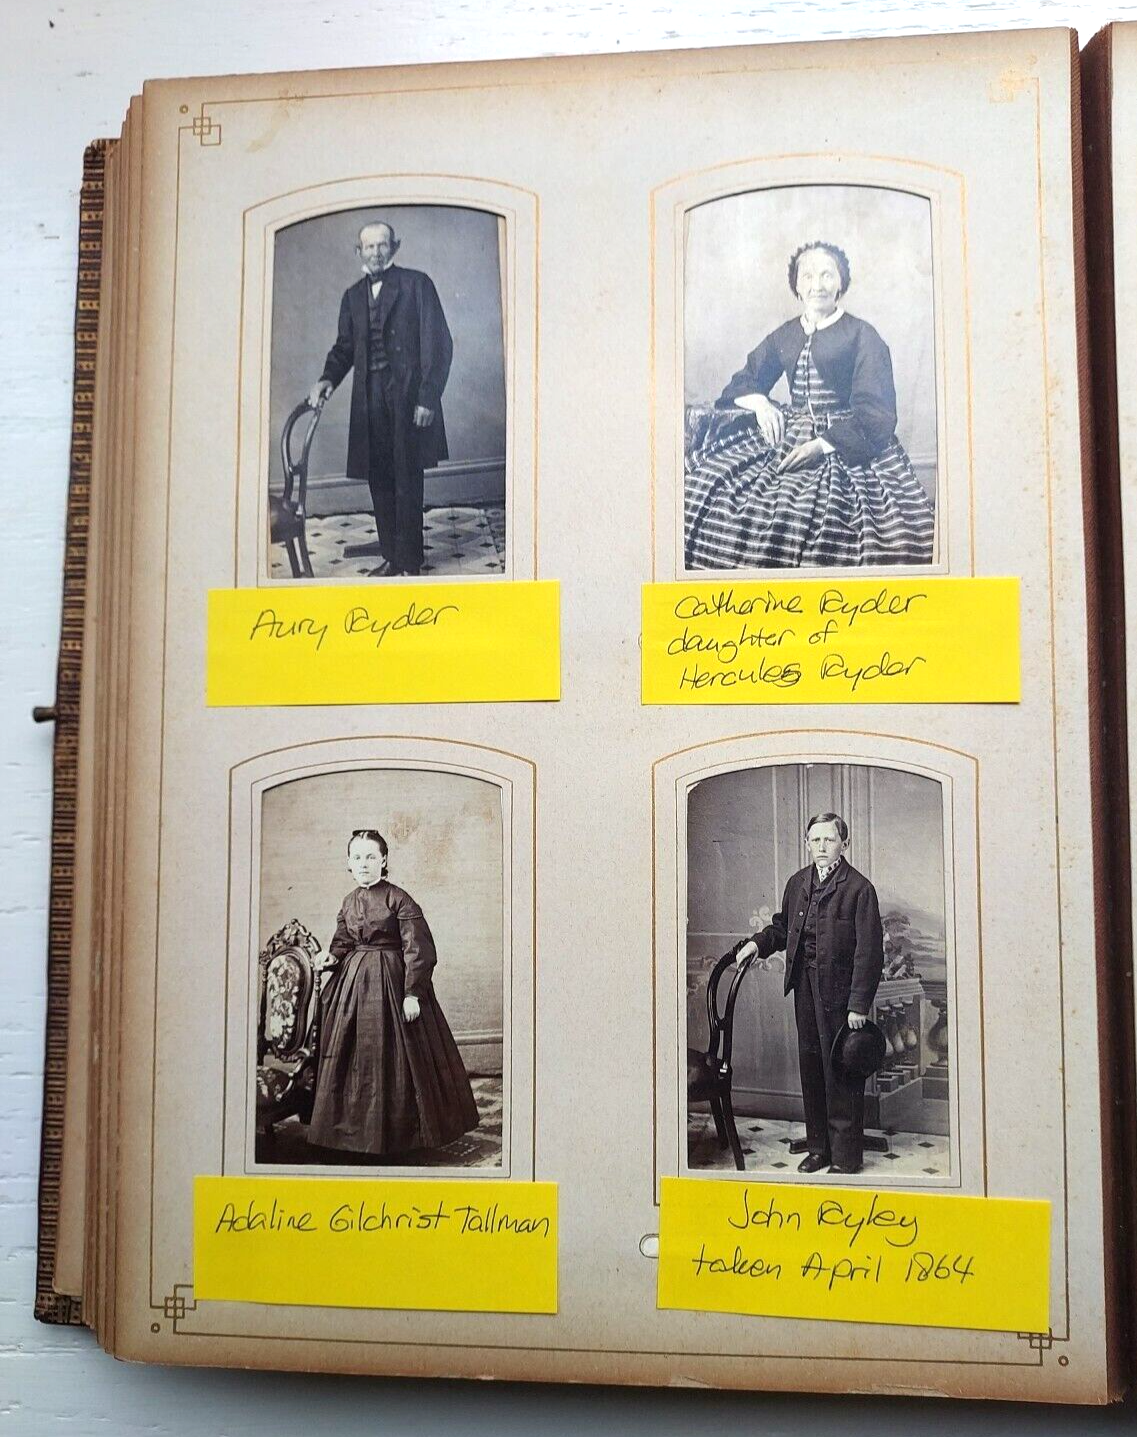 Aury Ryder
Catherine Ryder
daughter of
Hercules Ryder
Adaline Gilchrist Tallman
John Ryley
taken April 1864